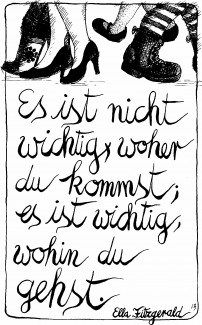 Es ist nicht
wichtig, woher
du kommst;
es ist wichtig,
wohin du
gehst.
Ella Fitzgerald